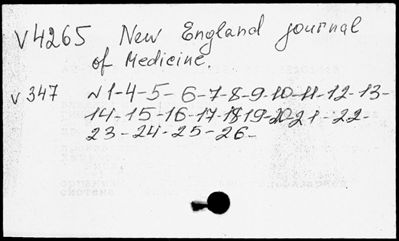 V4265 New England journal
of Medicine.
v 347 N 1-4-5-6-7-8-9-10-11-12-13-
14-15-16-17-18-19-20-21-22-
23-24-25-26-